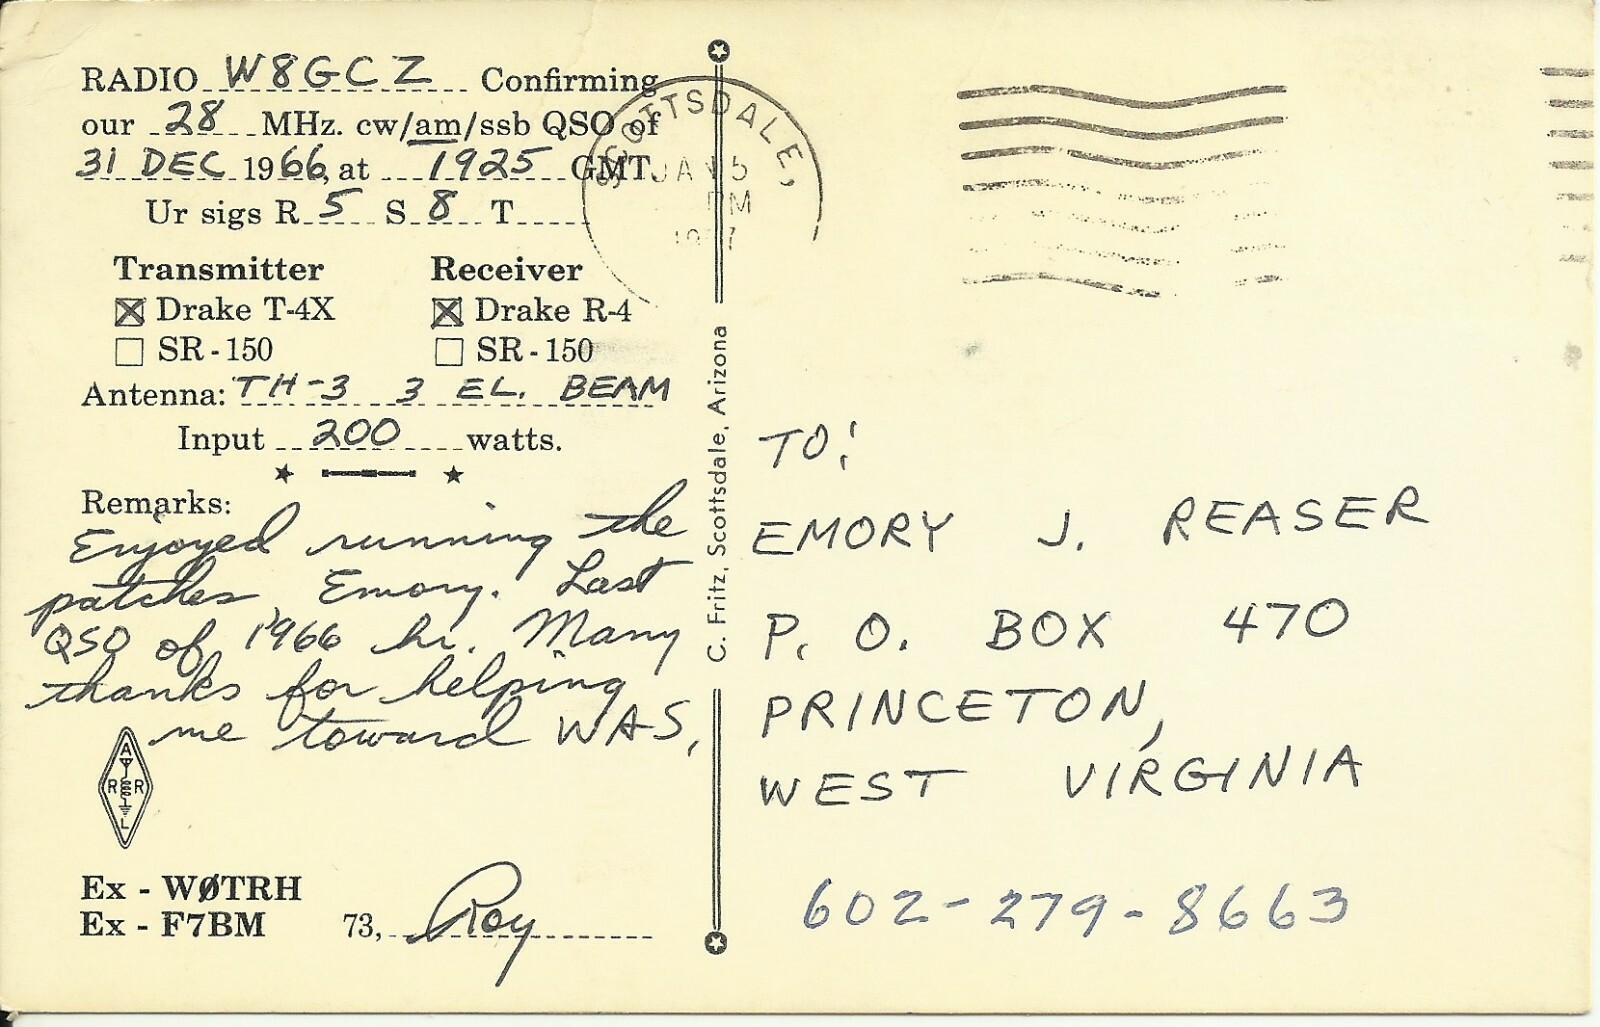 RADIO W8GCZ Confirming
our 28 MHz. cw/am/ssb QSO of
31 DEC 1966, at 1925 GMT.
Ur sigs R 5 S 8 T
Transmitter Receiver
☒ Drake T-4X ☒ Drake R-4
☐ SR-150 ☐ SR-150
Antenna: TH-3 3 EL. BEAM
Input 200 watts.
Remarks:
Enjoyed running the
patches Emory. Last
QSO of 1966 hr. Many
thanks for helping
me toward WAS,
ARRL
Ex - WØTRH
Ex - F7BM 73, Roy
C. Fritz, Scottsdale, Arizona
SCOTTSDALE,
JAN 5
PM
TO:
EMORY J. REASER
P. O. BOX 470
PRINCETON,
WEST VIRGINIA
602-279-8663